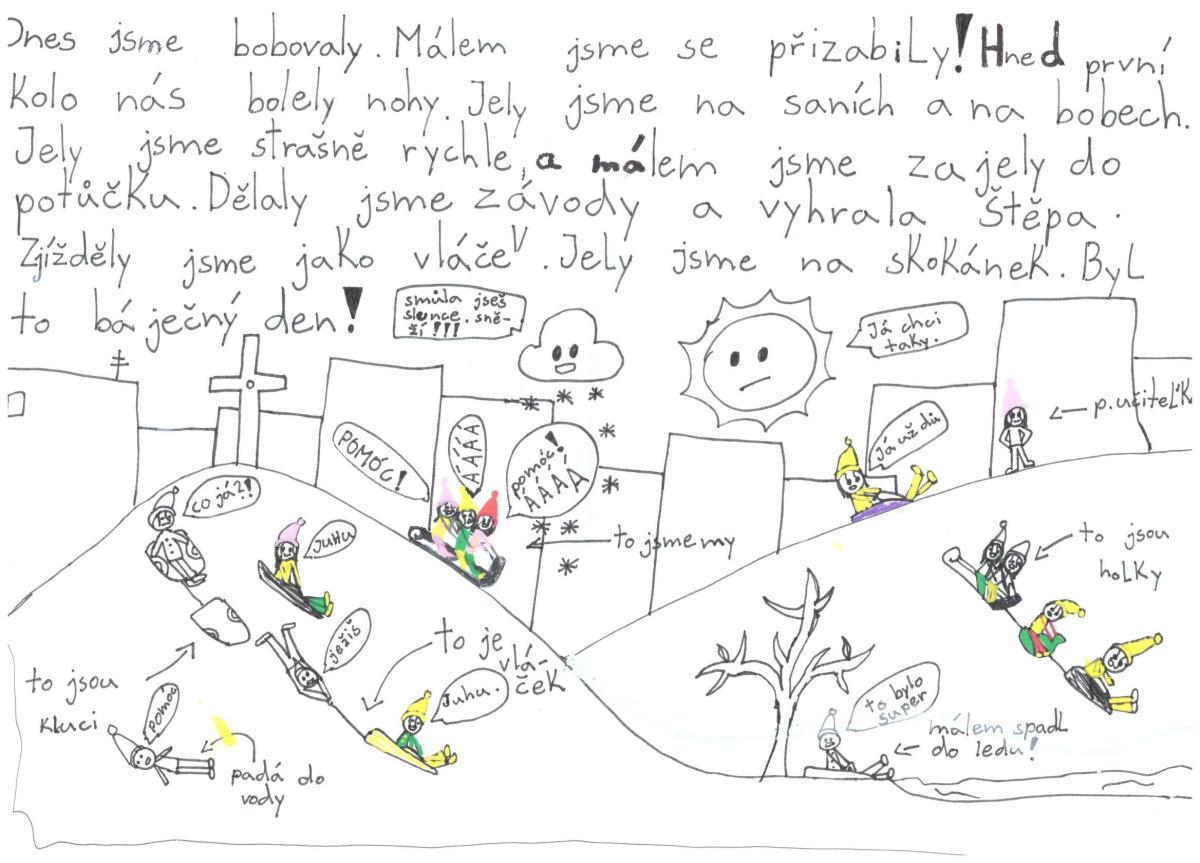 Dnes jsme bobovaly. Málem jsme se přizabiLy! Hned první
kolo nás bolely nohy. Jely jsme na saních a na bobech.
Jely jsme strašně rychle, a málem jsme zajely do
potůčku. Dělaly jsme závody a vyhrala Štěpa.
Zjížděly jsme jako vláček. Jely jsme na skokánek. ByL
to báječný den!
smůla jseš
slunce. sně-
ží!!!
Já chci
taky.
p. učiteľK
Já už dů
POMÓC!
ÁÁÁÁ
pomóc!
ÁÁÁÁ
co já?!!
JuHu
to jsme my
to jsou
hoLky
ježiš
to je
vlá-
ček
Juhu.
to jsou
kluci
pomóc
padá do
vody
to bylo
super
málem spadL
do ledu!